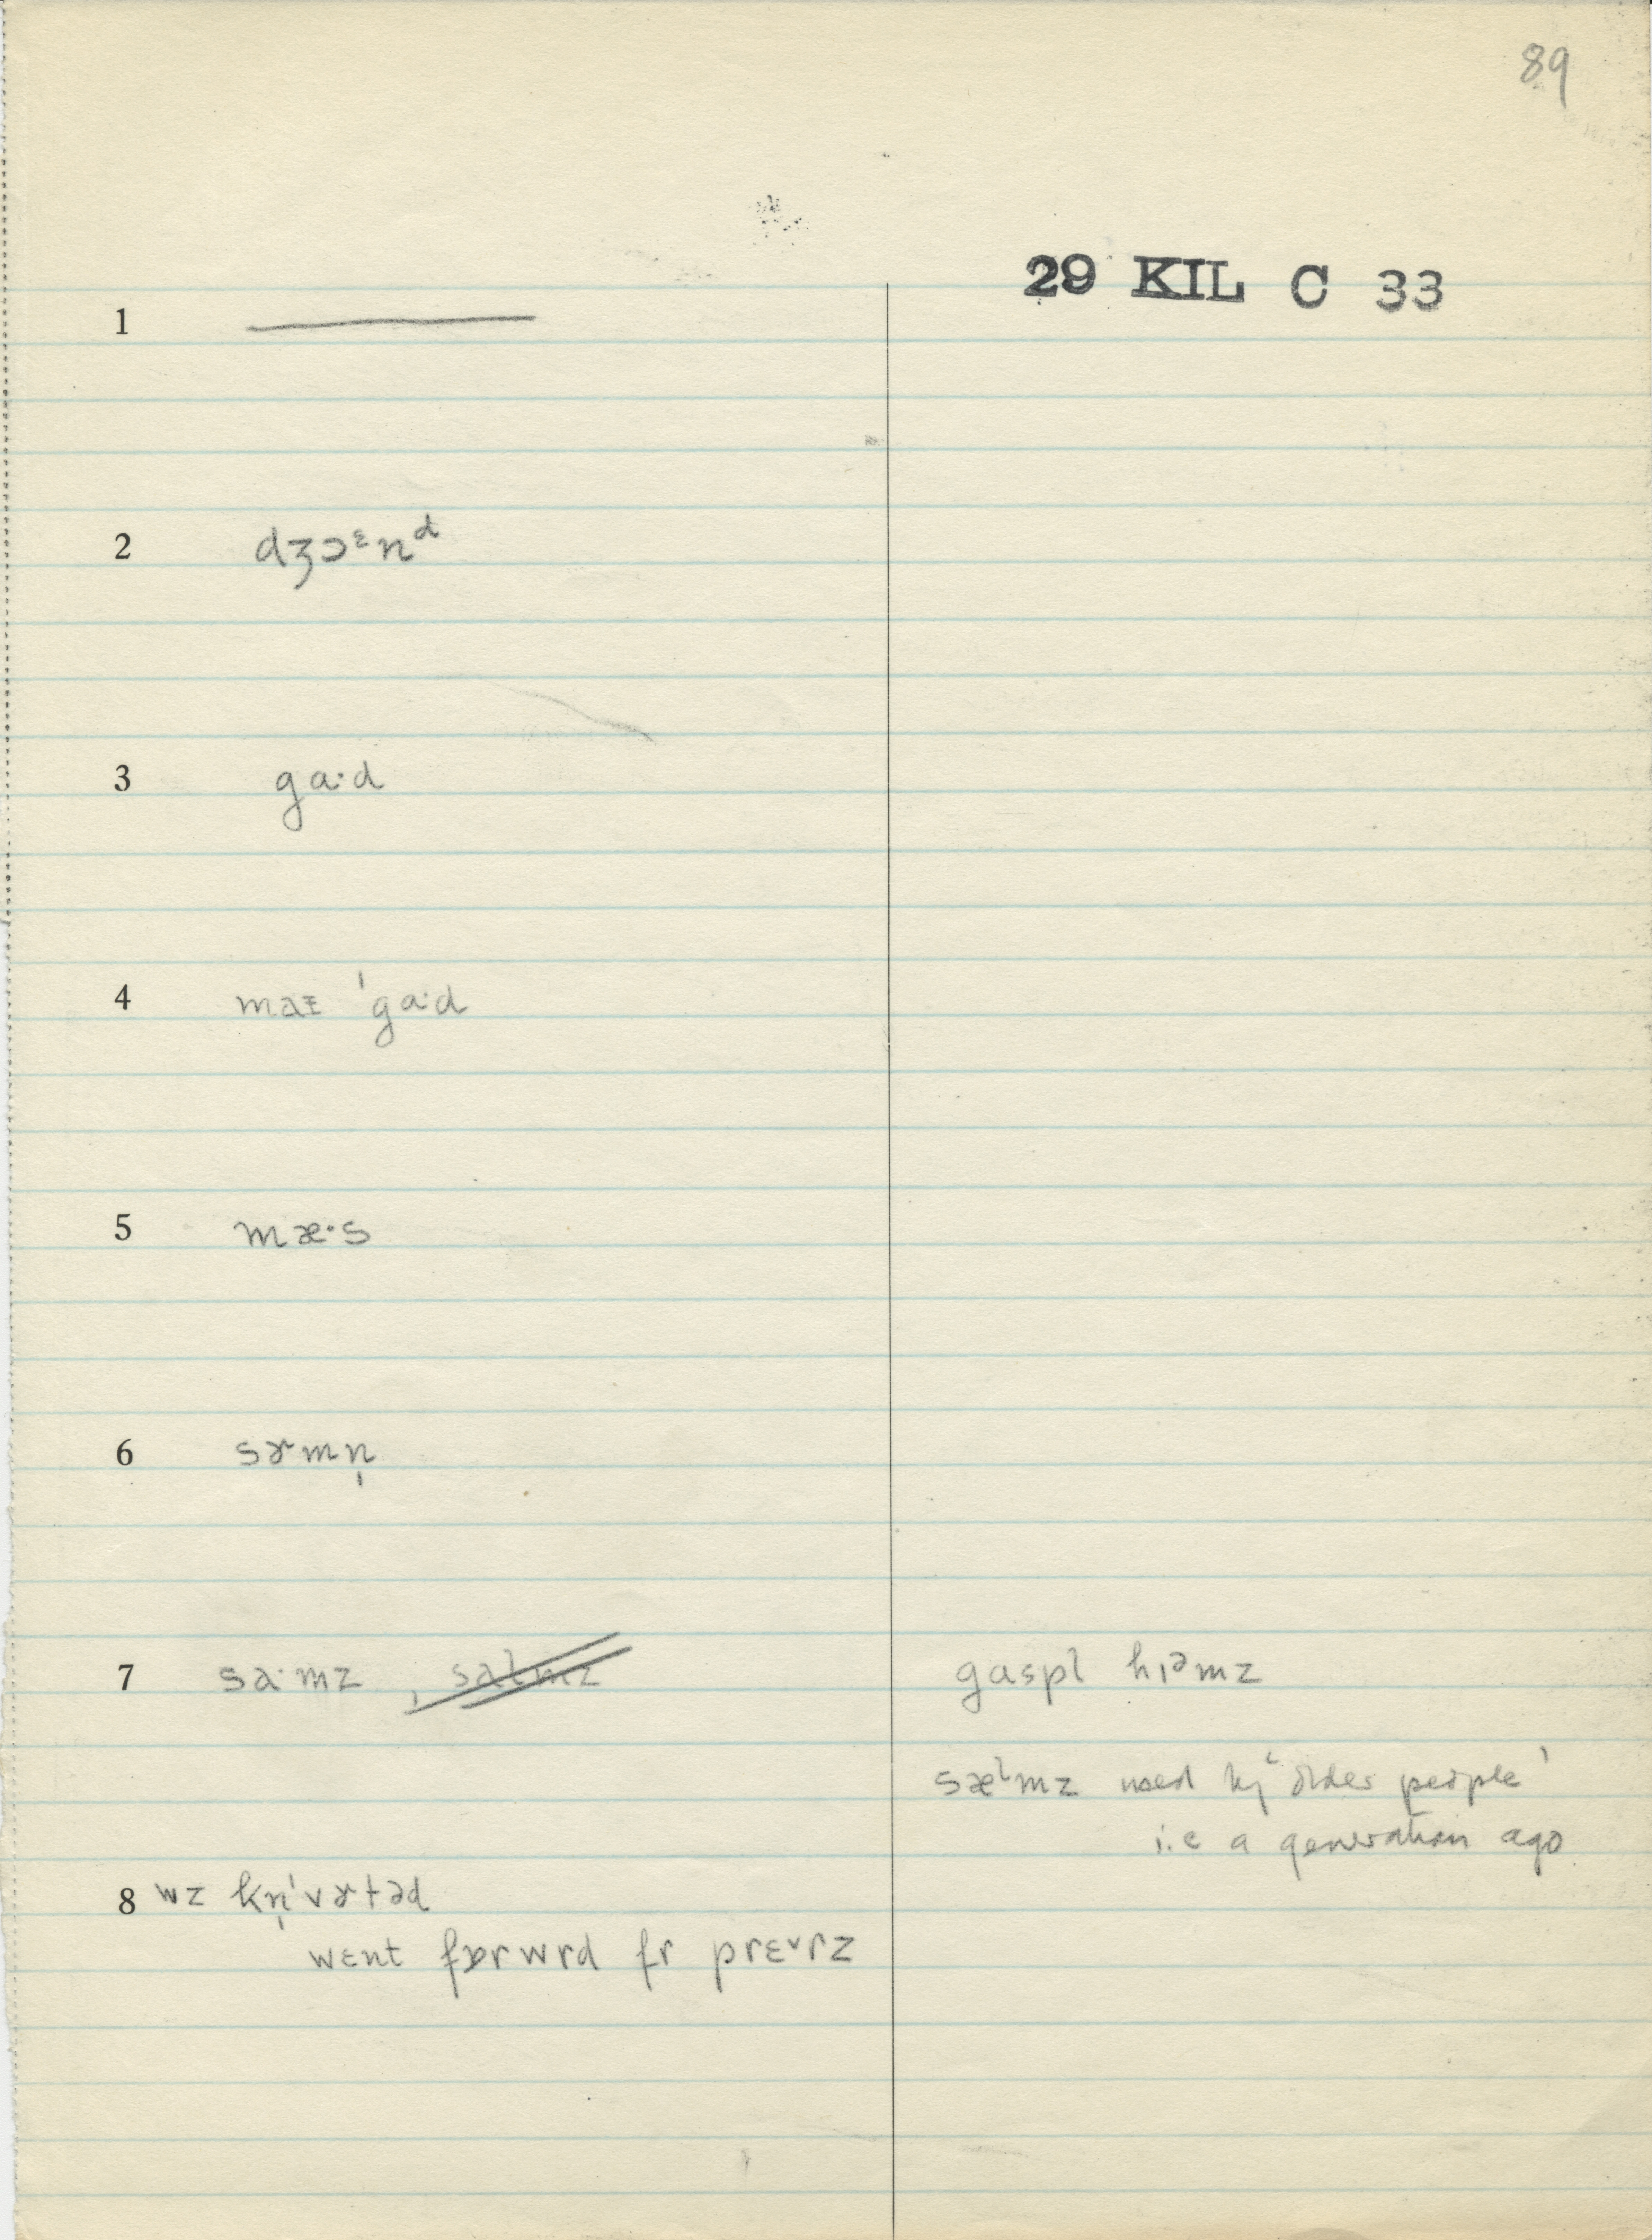 89
29 KIL C 33
1 ———
2 dʒɔᵋnᵈ
3 ga·d
4 maᵻ ˈga·d
5 mæ·s
6 sɚmn̩
7 sa·mz , salmz gaspl hɪᵊmz
sæˡmz used by ‘older people’
i.e a generation ago
8 wz kn̩ˈvɚtəd
wɛnt fɒrwrd fr prɛ˅rz